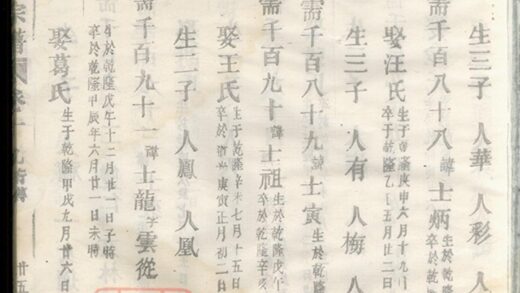 生三子 人華 人彩 人
需千百八十八 諱 士炳
生於
卒於乾隆
娶汪氏
生于 庚申六月十九
卒于乾隆乙 五月廿二日
生三子 人有 人梅 人
需千百八十九 諱 士寅
生於乾
卒於
需千百九十 諱 士祖
生於乾隆戊午
卒於乾隆辛亥
娶王氏
生于乾隆辛未七月十五日
卒於 庚寅正月初二日
生二子 人鳳 人凰
需千百九十一 諱 士龍 字 雲從
生於乾隆戊午十二月廿一日子時
卒於乾隆甲辰年六月廿一日未時
娶葛氏
生于乾隆甲戌九月廿六日
宗譜
廿五